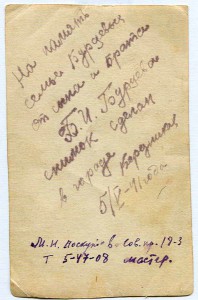 На память
семье Бурцевых
от сына и брата
Б. И. Бурцева
снимок сделан
в городе
5/V-41 года
М. Н. в Сов. пр. 19-3
Т 5-47-08 мастер.